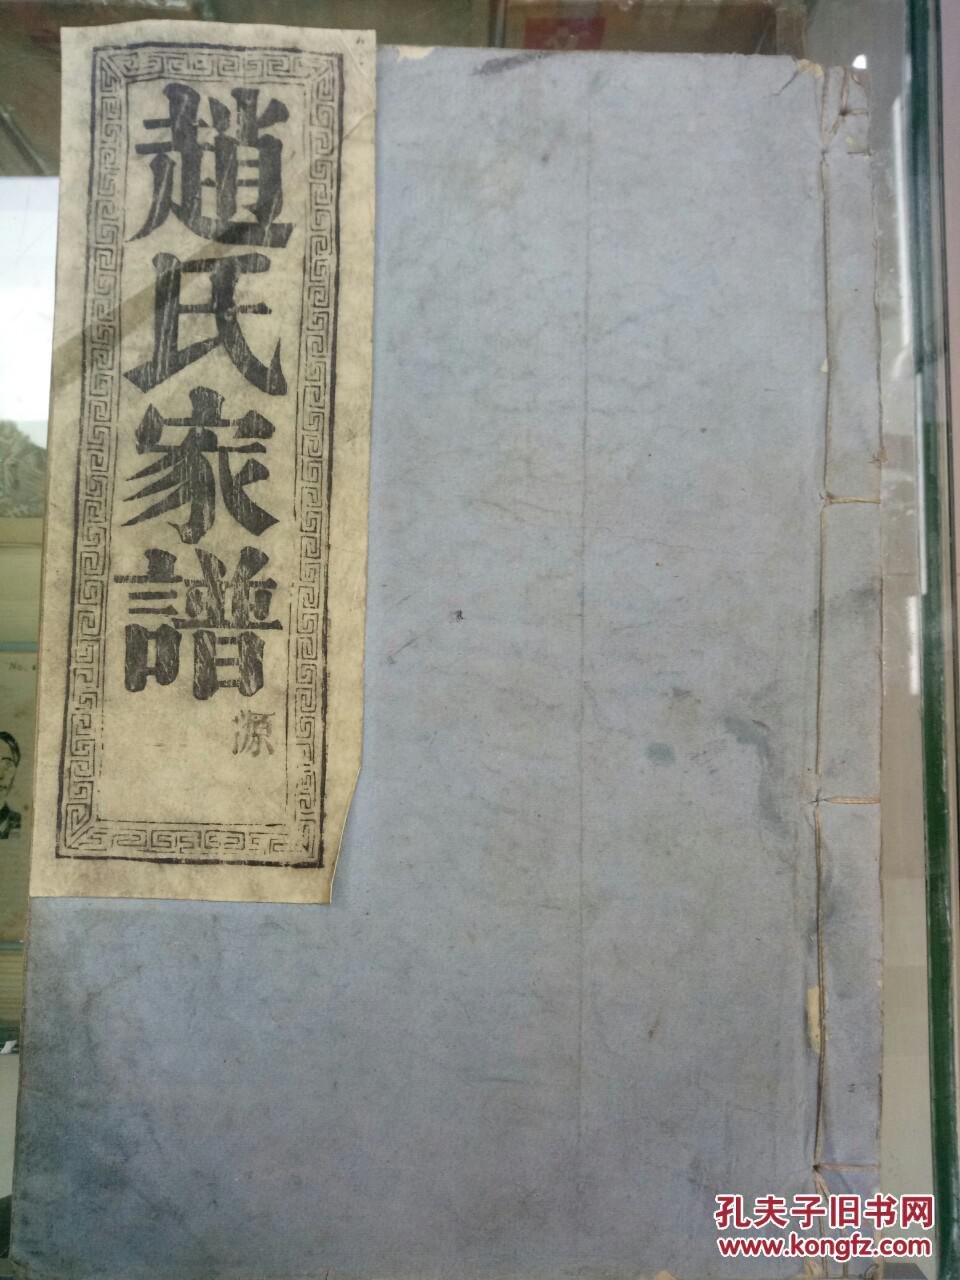 趙氏家譜
源
No.
孔夫子旧书网
www.kongfz.com